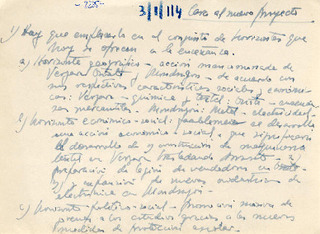 3/8/114 Cara al nuevo proyecto
1) Hay que emplearla en el conjunto de horizontes que
hoy se ofrecen a la enseñanza.
a) Horizonte geográfico - acción mancomunada de
Vergara Oñate y Mondragon - de acuerdo con
sus respectivas características sociales y económi-
cas: Vergara - química y textil - Oñate -
mercantiles. Mondragon - Metal - electricidad
b) Horizonte económico-social: posiblemente se desarrolle
una acción económica-social, que significaría
el desarrollo de construcción de maquinaria
textil en Vergara
preparación de vendedores en Oñate -
y expansión de nuevas
electrónica en Mondragon -
c) Horizonte político-social - promoción masiva de
a los estudios gracias a las nuevas
medidas de protección escolar.